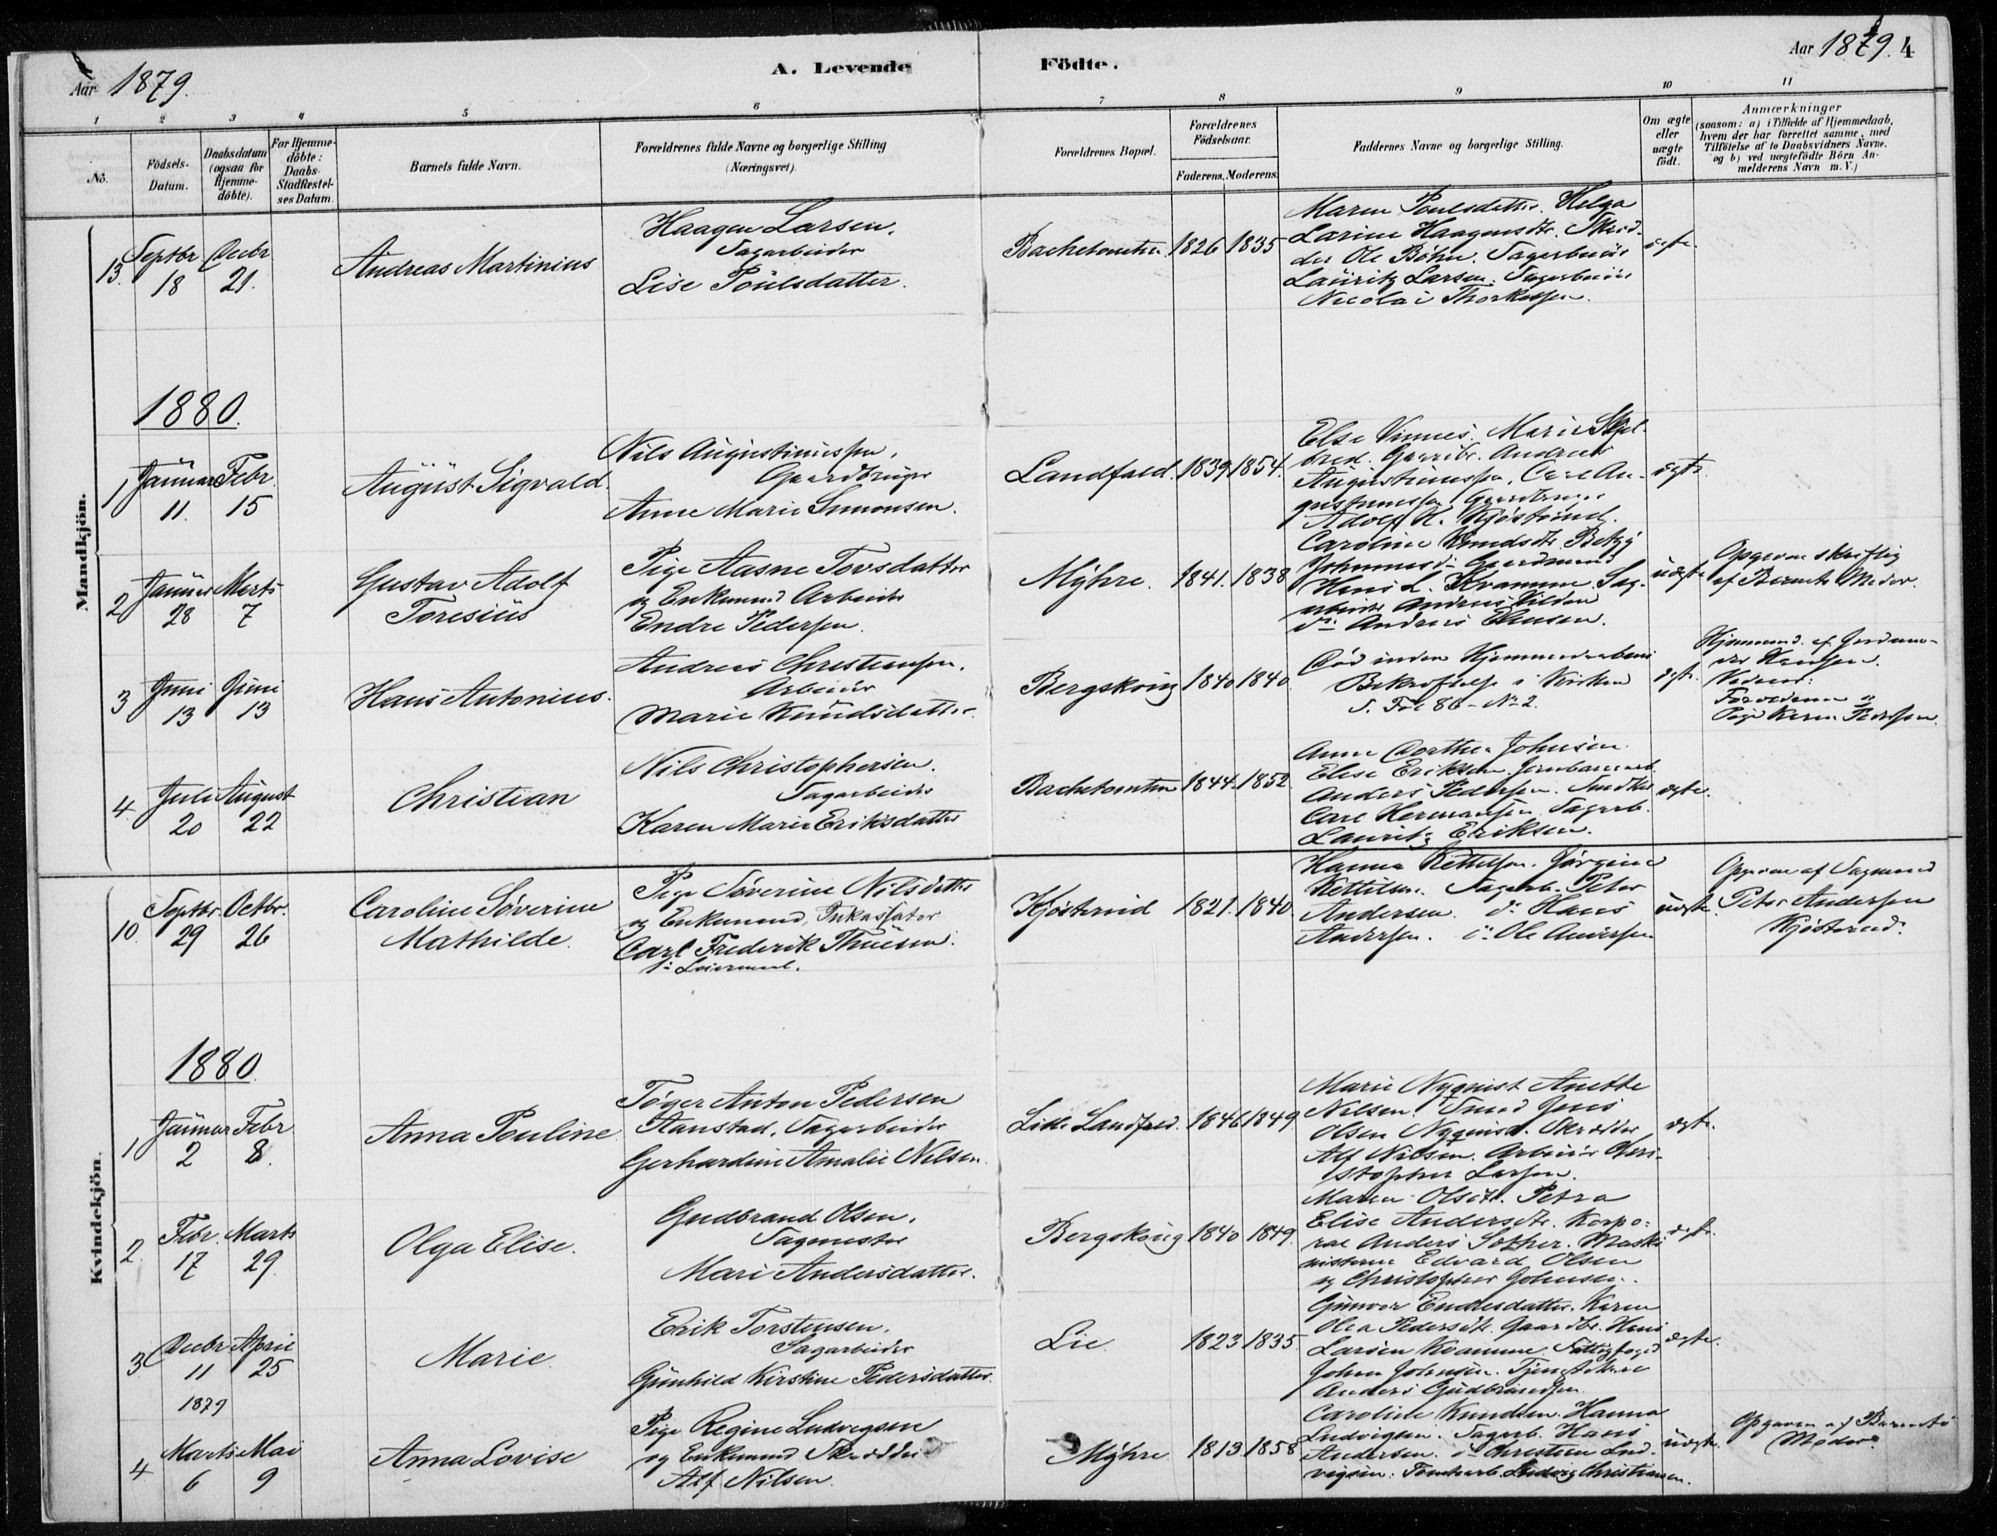 Aar 1879.
A. Levende Födte.
Aar 1879. 4
1 2 3 4 5 6 7 8 9 10 11
No.
Födsels-Datum.
Daabsdatum (ogsaa for Hjemme-döbte).
For Hjemme-döbte: Daabs-Stadfæstel-ses Datum.
Barnets fulde Navn.
Forældrenes fulde Navne og borgerlige Stilling (Næringsvei).
Forældrenes Bopæl.
Forældrenes Födselsaar.
Faderens. Moderens.
Faddernes Navne og borgerlige Stilling.
Om ægte eller uægte födt.
Anmærkninger
(saasom: a) i Tilfælde af Hjemmedaab,
hvem der har forrettet samme, med
Tilföielse af to Daabsvidners Navne,
og b) ved uægtefödte Börn An-
melderens Navn m.V.)
Mandkjön.
13. Septbr 18 Decbr 21.
Andreas Martinius
Haagen Larsen.
Sagarbeider
Lise Poulsdatter.
Bachetomten 1826 1835
Maren Poulsdatter. Helga
Larine Haagensdtr.
Ole Böhn. Sagarbeider
Lauritz Larsen. Sagarbeider
Nicolai
ægte.
1880.
1 Januar 11. Febr. 15
August Sigvald.
Nils Augustinussen,
Gaardbruger
Anne Marie Simonsen.
Landfald. 1839 1854.
Else Marie
Gaardbr. Andreas
Augustinussen, Carl Au-
gustinussen Gaardbruger
Adolf H. Kjösterud.
ægte.
2 Januar 28 Marts 7
Gustav Adolf
Toresius
Pige Aasne Torsdatter
og Enkemand Arbeider
Endre Pedersen.
Myhre. 1841. 1838
Caroline Knudsdtr
Hans L. Kvamme. Sag-
arbeider Andreas
do Andreas Hansen.
uægte
Opgivne skriftlig
af Barnets Moder.
3 Juni 13 Juni 13
Hans Antonius.
Andreas Christiansen.
Arbeider
Marie Knudsdatter.
Bergskoug 1840 1840
Död inden Hjemmedaabens
Bekræftelse i Kirken
S. Fol 86 - No 2.
ægte.
Hjemmed. af Jordmo-
der Hansen.
Forældrene og
Pige Karen Pedersen.
4 Juli 20 August 22
Christian
Nils Christophersen.
Sagarbeider
Karen Marie Eriksdatter
Bachetomten 1844. 1852
Anne Dorthea Johnsen.
Elise Eriksen. Jernbanearb.
Anders Pedersen.
Carl Hermansen Sagarb.
Lauritz Eriksen.
ægte.
Kvindekjön.
10. Septbr. 29 Octbr. 26
Caroline Söverine
Mathilde.
Pige Söverine Nilsdatter
og Enkemand, Inkassator
Carl Frederik Thuesen.
1ste Leiermaal.
Kjösterud 1821. 1840.
Hanna Kettelsen. Jörgine
Kettelsen. Sagarb. Peter
Andersen. do Hans
Andersen. do Ole Andersen
uægte.
Opgivne af Sagmand
Peter Andersen
Kjösterud.
1880.
1 Januar 2 Febr 8.
Anna Pouline
Töger Anton Pedersen
Aanstad, Sagarbeider
Gerhardine Amalie Nilsen.
Lille Landfald. 1846 1849
Marie Nyqvist Anette
Nilsen. Smed Jens
Olsen Nyqvist. Skrædder
Alf Nilsen. Arbeider Chri-
stopher Larsen.
ægte.
2. Febr. 17 Marts 29.
Olga Elise.
Gudbrand Olsen.
Sagmester
Mari Andersdatter.
Bergskoug 1840 1849.
Maren Olsdtr. Petra
Elise Andersdtr. Korpo-
ral Anders Maski-
nisterne Edvard Olsen
og Christopher Johnsen.
ægte.
3 Decbr 11 1879 April 25
Marie
Erik Torstensen.
Sagarbeider
Gunhild Kirstine Pedersdatter.
Lie 1823 1835
Gunvor Endresdatter. Karen
Olea Pedersdtr. Gaardbr. Hans
Larsen Kvamme. Fattigfoged
Johan Johnsen. Tjenestekarl
Anders Gudbrandsen
ægte.
4 Marts 6 Mai 9
Anna Lovise
Pige Regine Ludvigsen
og Enkemand Skrædder
Alf Nilsen.
Myhre 1813 1858
Caroline Knudsen. Hanna
Ludvigsen. Sagarb. Hans
Andersen. do Christian Lud-
vigsen. Tomtearb. Ludvig Christiansen.
uægte.
Opgivne af Barnets
Moder.